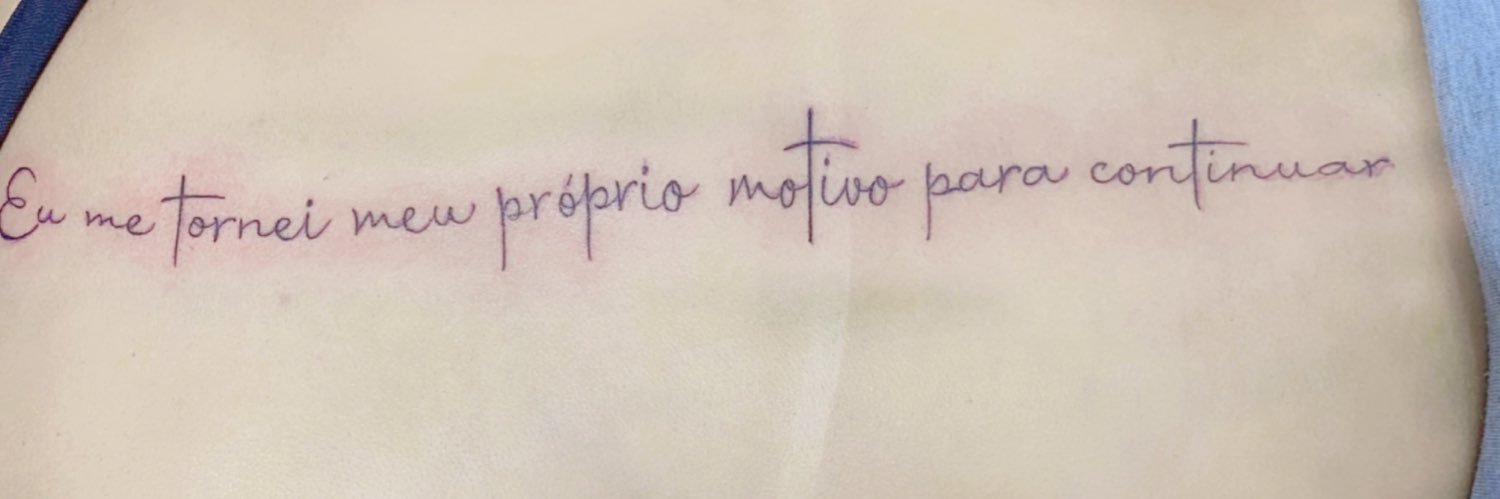 Eu me tornei meu próprio motivo para continuar